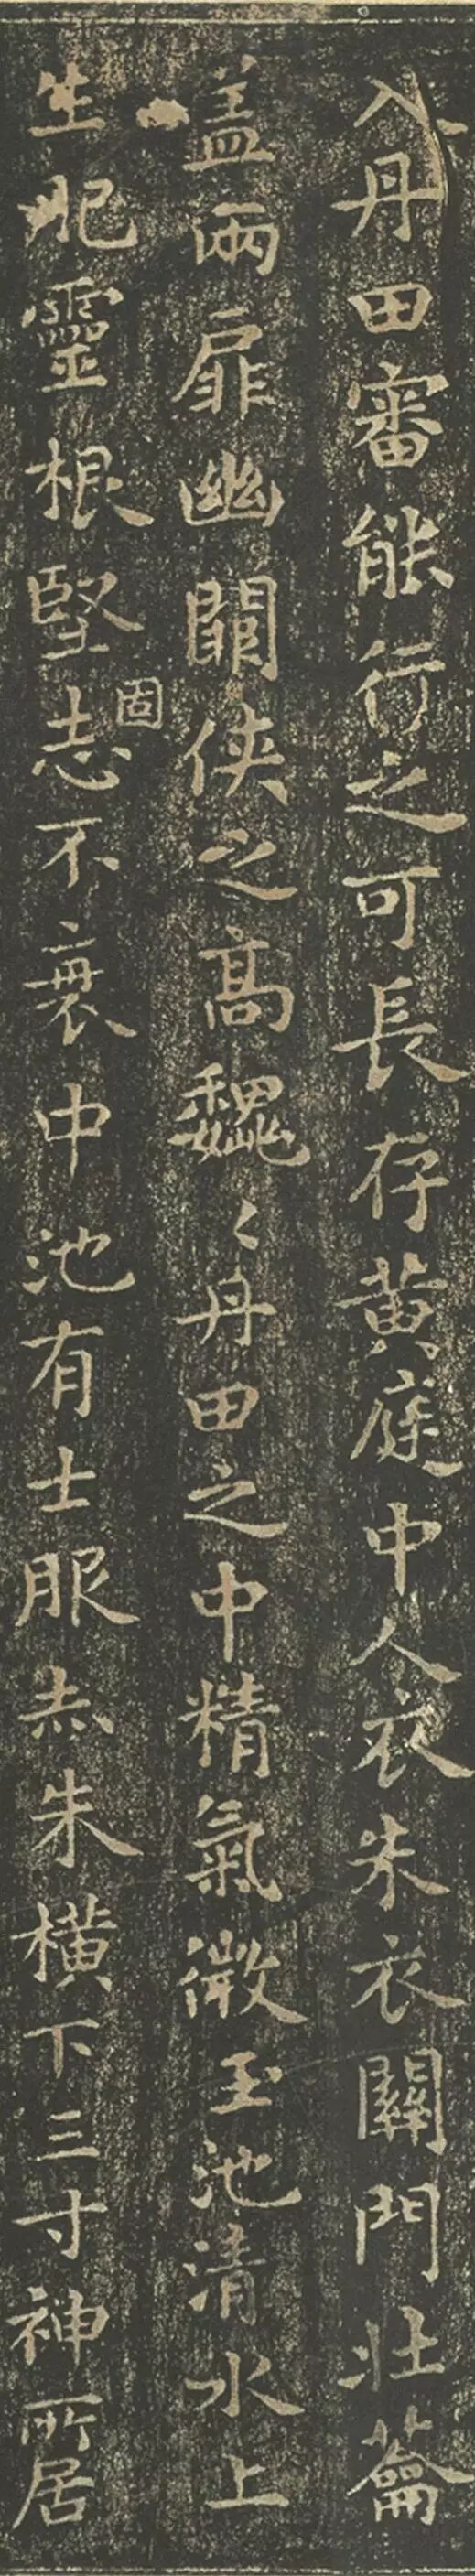 入丹田審能行之可長存黃庭中人衣朱衣關門壯蘥
盖兩扉幽關俠之高魏〻丹田之中精氣微玉池清水上
生肥靈根堅固志不衰中池有士服赤朱横下三寸神所居